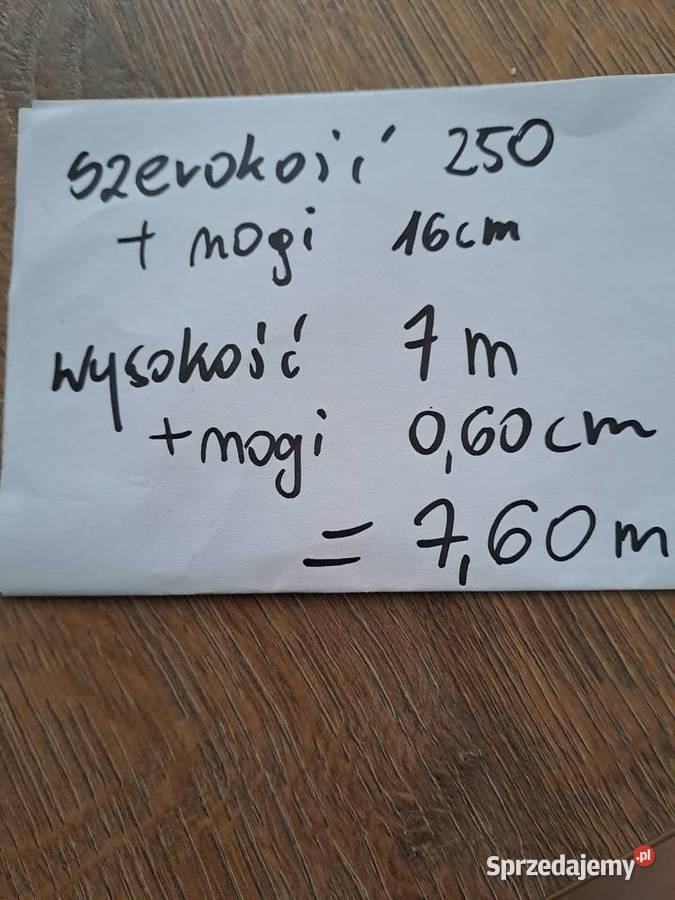 szerokość 250
+ nogi 16cm
wysokość 7m
+nogi 0,60cm
= 7,60m
Sprzedajemy.pl